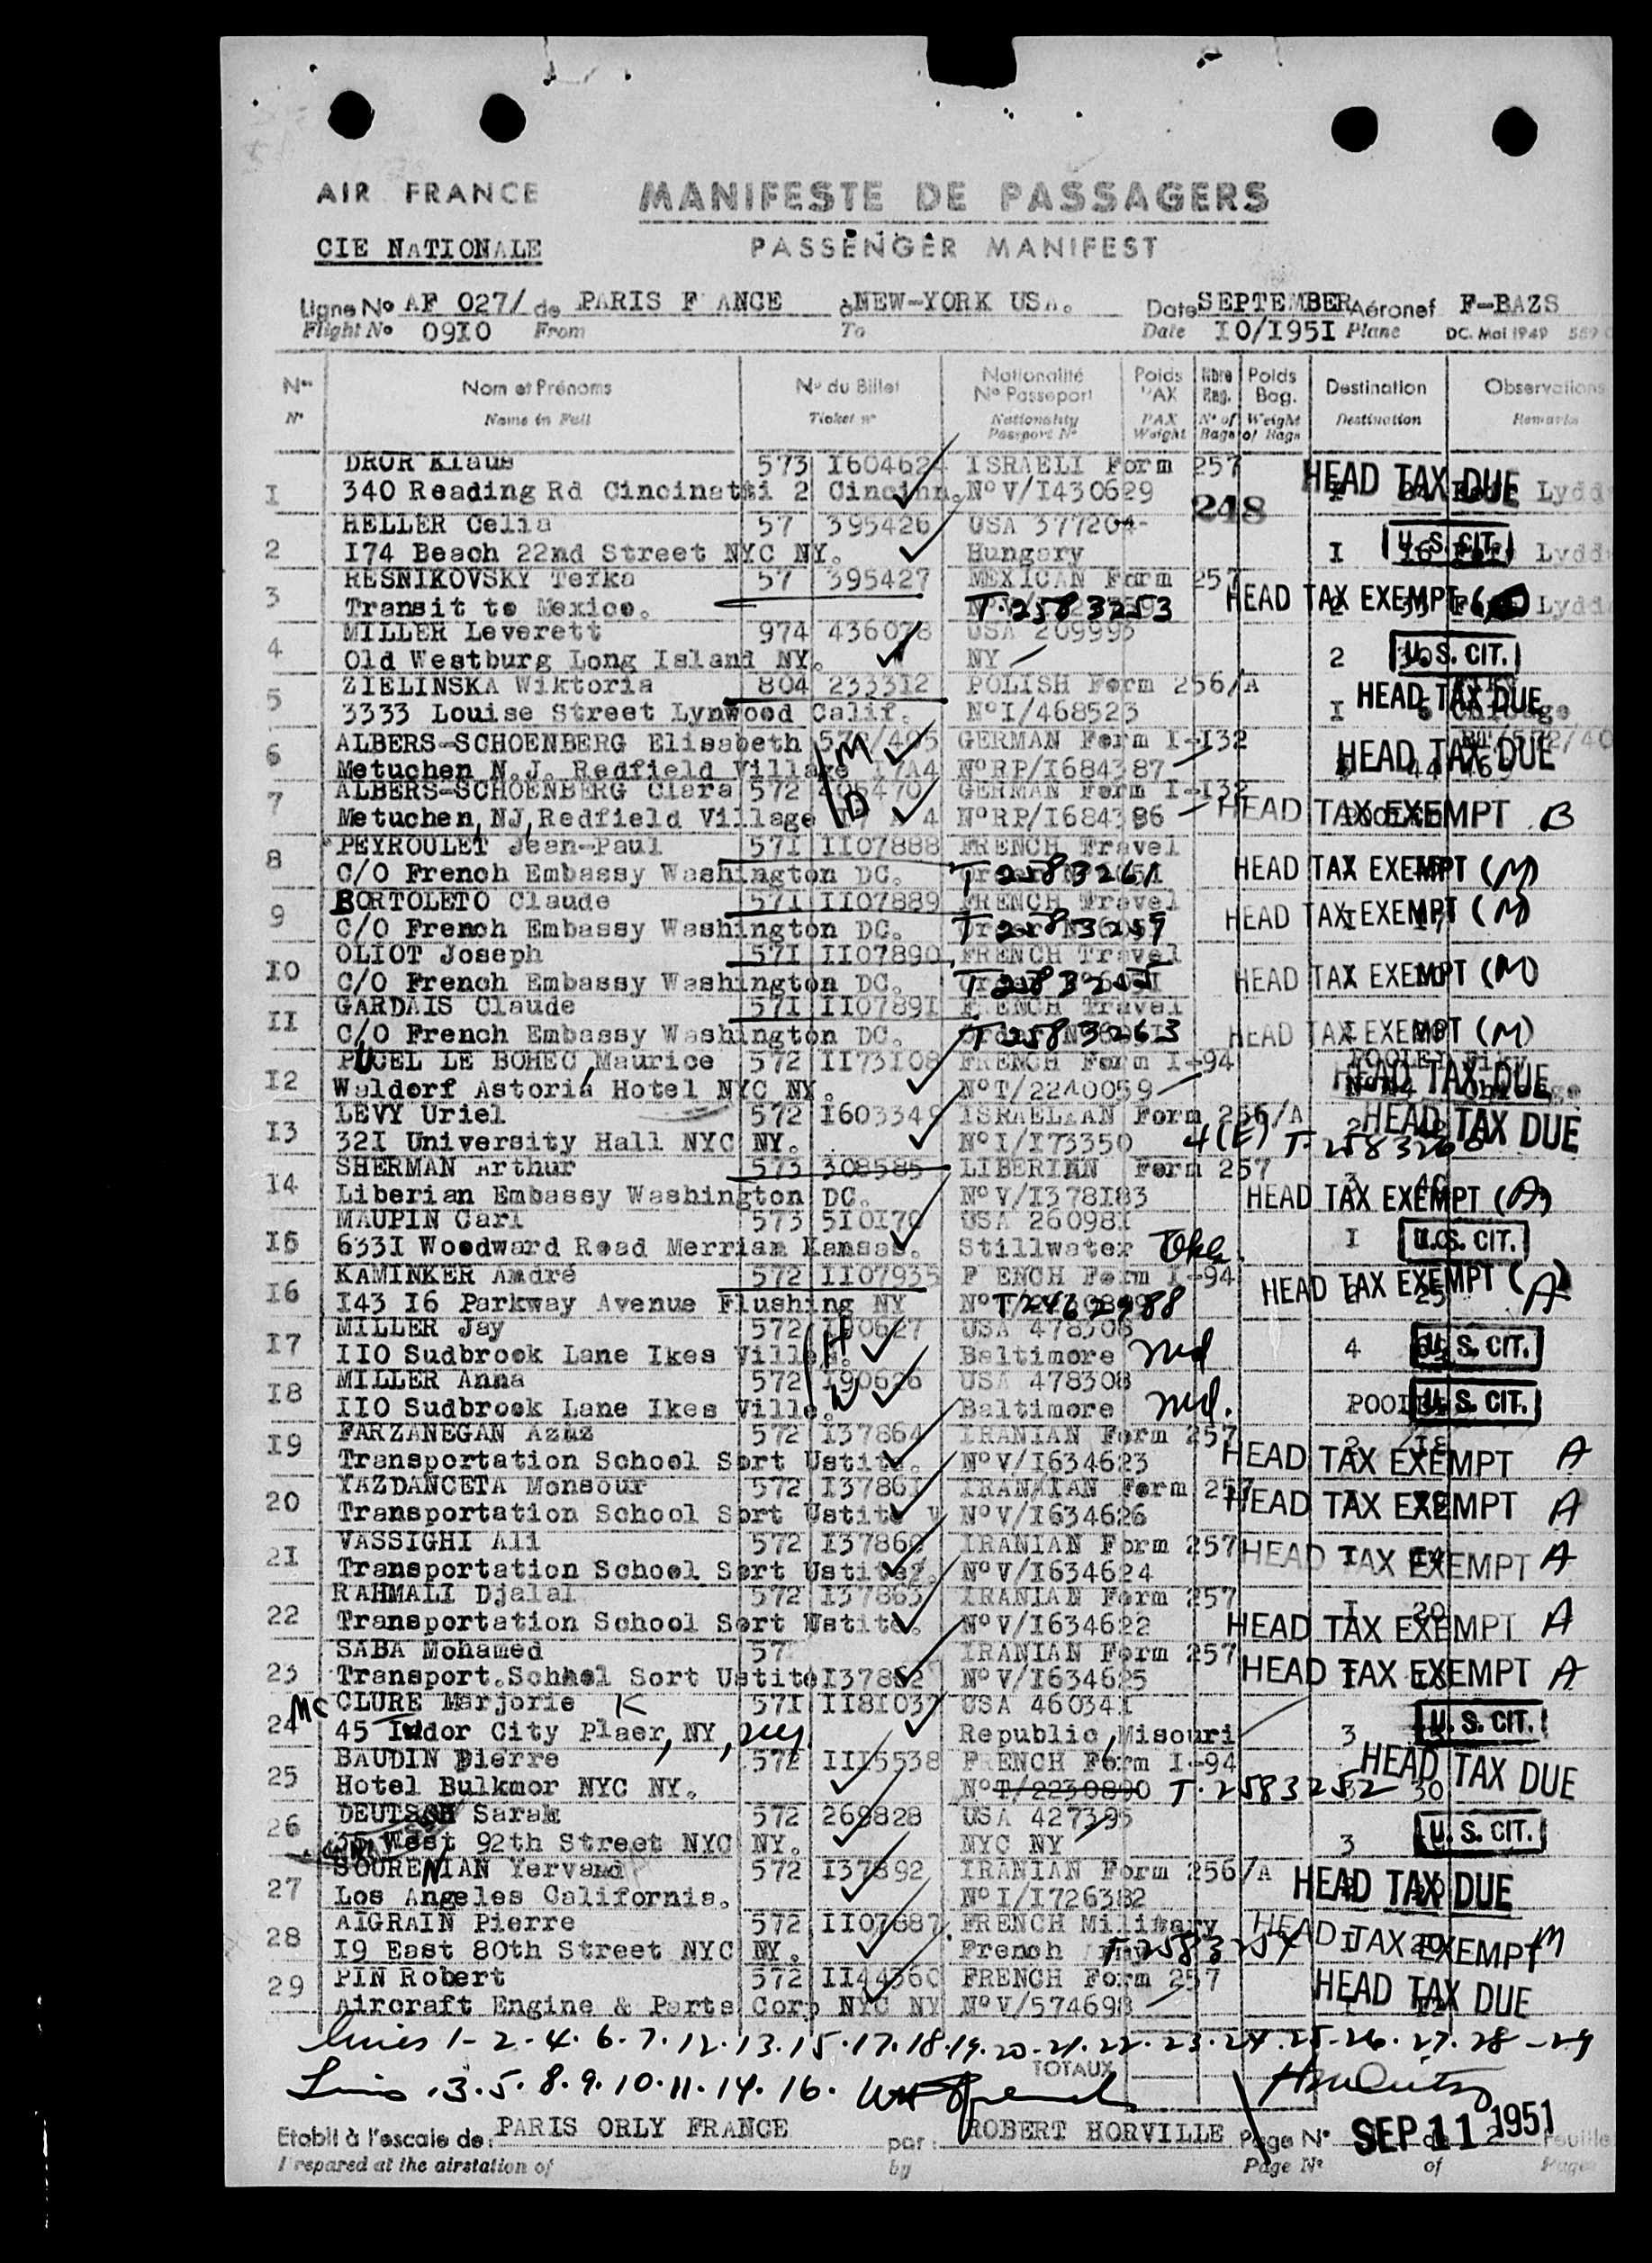 AIR FRANCE MANIFESTE DE PASSAGERS
CIE NATIONALE PASSENGER MANIFEST
Ligne No AF 027/ de PARIS F ANCE à NEW-YORK USA. Date SEPTEMBER Aéronef F-BAZS
Flight No 09I0 From To Date I0/I95I Plane DC. Mai 1949
Nos Nom et Prénoms No du Billet Nationalité No Passeport Poids PAX Nbre Bag. Poids Bag. Destination Observations
No Name in Full Ticket no Nationality Passport No PAX Weight No of Bags Weight of Bags Destination Remarks
DROR Klaus 573 I604624 ISRAELI Form 257 HEAD TAX DUE
I 340 Reading Rd Cincinatti 2 Cincinn. No V/I430629 248 Lydd
HELLER Celia 57 395426 USA 377204- U. S. CIT.
2 I74 Beach 22nd Street NYC NY. Hungary I Lydd
RESNIKOVSKY Tefka 57 395427 MEXICAN Form 257 HEAD TAX EXEMPT
3 Transit to Mexico. T-2583253 Lydd
MILLER Leverett 974 436078 USA 209995
4 Old Westburg Long Island NY. NY 2 U. S. CIT.
ZIELINSKA Wiktoria 804 233312 POLISH Form 256/A HEAD TAX DUE
5 3333 Louise Street Lynwood Calif. No I/468523 I
ALBERS-SCHOENBERG Elisabeth 572/405 M GERMAN Form I-I32 HEAD TAX DUE
6 Metuchen N.J. Redfield Village I7A4 No RP/I684387
ALBERS-SCHOENBERG Clara 572 405470 D GERMAN Form I-I32 HEAD TAX EXEMPT B
7 Metuchen, NJ, Redfield Village I7 A 4 No RP/I684386
PEYROULET Jean-Paul 57I II07888 FRENCH Travel HEAD TAX EXEMPT (M)
8 C/O French Embassy Washington DC. T 2583261
BORTOLETO Claude 57I II07889 FRENCH Travel HEAD TAX EXEMPT (M)
9 C/O French Embassy Washington DC. T 2583259
OLIOT Joseph 57I II07890 FRENCH Travel HEAD TAX EXEMPT (M)
I0 C/O French Embassy Washington DC.
GARDAIS Claude 57I II0789I F ENCH Travel
II C/O French Embassy Washington DC. T 2583263 HEAD TAX EXEMPT (M)
PUCEL LE BOHEC, Maurice 572 II73I08 FRENCH Form I-94 HEAD TAX DUE
I2 Waldorf Astoria Hotel NYC NY. No T/2240059
LEVY Uriel 572 I603349 ISRAELIAN Form 256/A HEAD TAX DUE
I3 32I University Hall NYC NY. No I/I73350 4(E) T-2583260
SHERMAN Arthur 573 308585 LIBERIAN Form 257
I4 Liberian Embassy Washington DC. No V/I378I83 HEAD TAX EXEMPT (A)
MAUPIN Carl 573 5I0I70 USA 26098I
I5 633I Woodward Road Merriam Kansas. Stillwater Okla. I U.S. CIT.
KAMINKER André 572 II07935 F ENCH Form I-94 HEAD TAX EXEMPT (A)
I6 I43 I6 Parkway Avenue Flushing NY T2462988
MILLER Jay 572 I90627 H USA 478308
I7 II0 Sudbrook Lane Ikes Ville. Baltimore Md 4 U. S. CIT.
MILLER Anna 572 I90626 W USA 478308
I8 II0 Sudbrook Lane Ikes Ville. Baltimore Md. U. S. CIT.
FARZANEGAN Azaz 572 I37864 IRANIAN Form 257
I9 Transportation School Sort Ustite. No V/I634623 HEAD TAX EXEMPT A
YAZDANCETA Monsour 572 I3786I IRANIAN Form 257
20 Transportation School Sort Ustite V No V/I634626 HEAD TAX EXEMPT A
VASSIGHI Ali 572 I37860 IRANIAN Form 257
2I Transportation School Sort Ustite. No V/I634624 HEAD TAX EXEMPT A
RAHMALI Djalal 572 I37863 IRANIAN Form 257
22 Transportation School Sort Ustite. No V/I634622 HEAD TAX EXEMPT A
SABA Mohamed 57 IRANIAN Form 257
23 Transport.School Sort Ustite I37862 No V/I634625 HEAD TAX EXEMPT A
Mc CLURE Marjorie K 57I II8I037 USA 46034I
24 45 Tudor City Plaer, NY, NY. Republic, Misouri 3 U. S. CIT.
BAUDIN Pierre 572 III5538 FRENCH Form I-94 HEAD TAX DUE
25 Hotel Bulkmor NYC NY. No T/2230890 T-2583252 30
DEUTSCH Sarah 572 269828 USA 427395
26 35 West 92th Street NYC NY. NYC NY 3 U. S. CIT.
SOURENIAN Yervand 572 I37892 IRANIAN Form 256/A HEAD TAX DUE
27 Los Angeles California. No I/I726382
AIGRAIN Pierre 572 II07887 FRENCH Military HEAD TAX EXEMPT M
28 I9 East 80th Street NYC NY. French
PIN Robert 572 II44360 FRENCH Form 257 HEAD TAX DUE
29 Aircraft Engine & Parts Corp NYC NY No V/574698
lines 1-2-4-6-7-12-13-15-17-18-19-20-21-22-23-24-25-26-27-28-29
TOTAUX
Lines 3-5-8-9-10-11-14-16.
Etabli à l'escale de: PARIS ORLY FRANCE par: ROBERT HORVILLE Page No SEP 11 1951 2 Feuille
Prepared at the airstation of by Page No of Pages